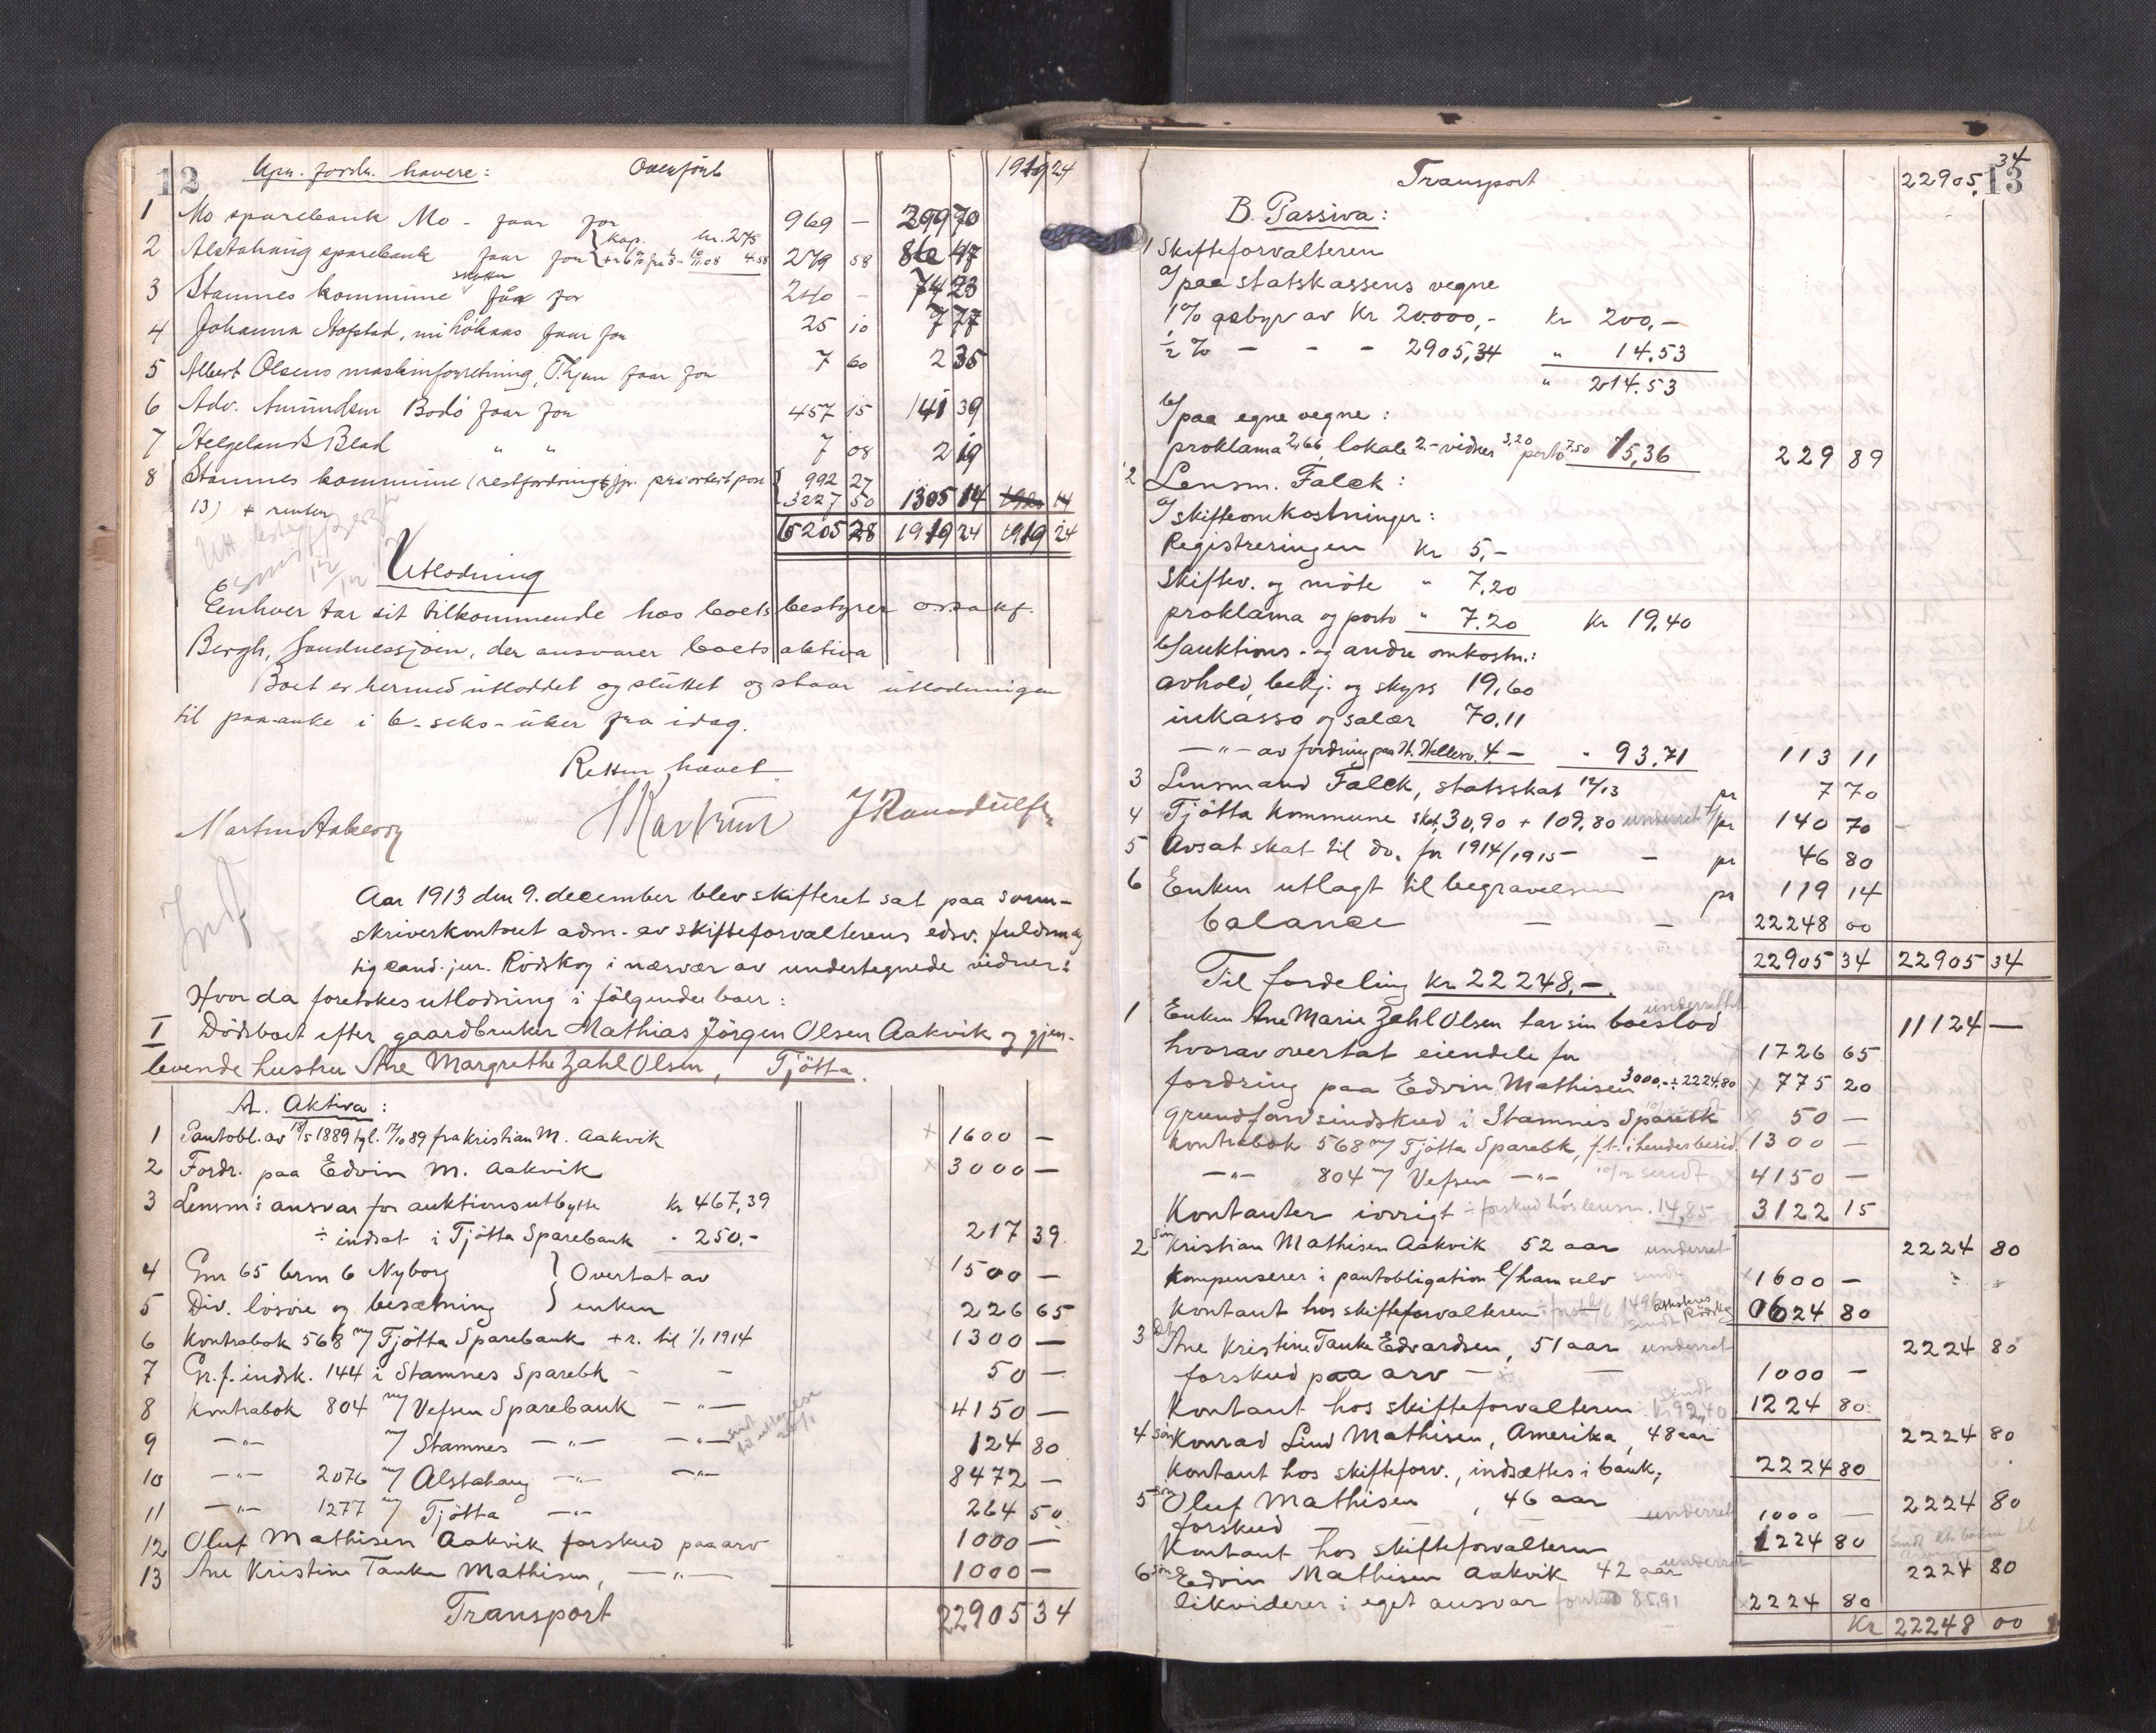 12 Upr. fordr. havere: Overført 1919 24
1 Mo sparebank Mo - faar for 969 - 299 70
2 Alstahaug sparebank faar for { kap. kr. 275 4.58 279 58 86 47
3 Stamnes kommune skatter faar for 240 - 74 23
4 Johanna Hofstad, faar for 25 10 7 77
5 Albert Olsens maskinforretning, Thjem faar for 7 60 2 35
6 Adv. Amundsen Bodö faar for 457 15 141 39
7 Helgelands Blad " " 7 08 2 19
8 Stamnes kommune (restfordring jfr. prioritert post 992 27
13) + renter 3227 50 1305 14
6205 28 1919 24 1919 24
Utlodning
Eenhver tar sit tilkommende hos boets bestyrer o.r.sakf.
Bergh, Sandnessjøen, der ansvarer boets aktiva
Boet er hermed utloddet og sluttet og staar utlodningen
til paa-anke i 6-seks-uker fra idag.
Retten hævet
Aar 1913 den 9. december blev skifteret sat paa soren-
skriverkontoret adm. av skifteforvalterens edsv. fuldmæg
tig cand. jur. Rödskog i nærvær av undertegnede vidner:
Hvor da foretokes utlodning i fölgende boer:
I Dödsboet efter gaardbruker Mathias Jörgen Olsen Aakvik og gjen-
levende hustru Ane Margrethe Zahl Olsen, Tjötta.
A. Aktiva:
1 Pantobl. av 18/5 1889 tgl. 17/10 89 fra Kristian M. Aakvik × 1600 -
2 Fordr. paa Edvin M. Aakvik × 3000 -
3 Lensm:s ansvar for auktionsutbytte kr 467,39
÷ indsat i Tjötta Sparebank - 250.- 217 39
4 Gnr 65 brn 6 Nyborg } Overtat av × 1500 -
5 Div. lösöre og besætning } enken × 226 65
6 Kontrabok 568 m/ Tjötta Sparebank + r. til 1/1 1914 × 1300 -
7 Gr. f. indsk. 144 i Stamnes Sparebk - - × 50 -
8 Kontrabok 804 m/ Vefsen Sparebank - " - × 4150 -
9 - " - m/ Stamnes - " - - " - 124 80
10 - " - 2076 m/ Alstahaug - " - - " - 8472 -
11 - " - 1277 m/ Tjötta - " - 264 50
12 Oluf Mathisen Aakvik forskud paa arv 1000 -
13 Ane Kristine Tanke Mathisen, - " - 1000 -
Transport 22905 34
13 Transport 22905, 34
B. Passiva:
1 Skifteforvalteren
a/ paa statskassens vegne
1% gebyr av kr 20.000,- kr 200,-
1/2 % - - - 2905,34 " 14.53
" 214.53
b/ paa egne vegne:
proklama 2,66, lokale 2.- vidner 3,20 porto 7.50 15,36 229 89
2 Lensm. Falck:
a/ skifteomkostninger:
Registreringen kr 5,-
Skiftev. og möte " 7,20
proklama og porto " 7.20 kr 19,40
b/ auktions- og andre omkostn.:
avhold, bekj. og skyss 19,60
inkasso og salær 70,11
- " - av fordring paa H. Hellesv. 4 - " 93.71 113 11
3 Lensmand Falck, statsskat 12/13 pr 7 70
4 Tjötta kommune skt. 30,90 + 109,80 underret pr 140 70
5 Avsat skat til do. for 1914/1915 - pr 46 80
6 Enken utlagt til begravelsen pr 119 14
balance - - 22248 00
22905 34 22905 34
Til fordeling kr 22248,-.
underrettet
1 Enken Ane Marie Zahl Olsen tar sin boeslod 11124 -
hvorav overtat eiendele for 1726 65
fordring paa Edvin Mathisen 3000,- ÷ 2224,80 × 775 20
grundfondsindskud i Stamnes Sparebk × 50 -
Kontrabok 568 m/ Tjötta Sparebk, f.t. i hendes besid. 1300 -
- " - 804 m/ Vefsen - " - sendt 4150 -
Kontanter iövrigt ÷ forskud hos lensm. 14,85 3122 15
2 sön Kristian Mathisen Aakvik 52 aar underret 2224 80
kompenserer i pantobligation f/ ham selv sendt × 1600 -
kontant hos skifteforvalteren 0624 80
3 dt Ane Kristine Tanke Edvardsen, 51 aar underret 2224 80
forskud paa arv - - 1000 -
Kontant hos skifteforvalteren 1224 80
4 sön Konrad Lind Mathisen, Amerika, 48 aar 2224 80
Kontant hos skifteforv., indsættes i bank, 2224 80
5 sön Oluf Mathisen, 46 aar underret 2224 80
forskud 1000 -
Kontant hos skifteforvalteren 1224 80
6 sön Edvin Mathisen Aakvik 42 aar underret 2224 80
likviderer i eget ansvar forskud 85,91 × 2224 80
Kr 22248 00